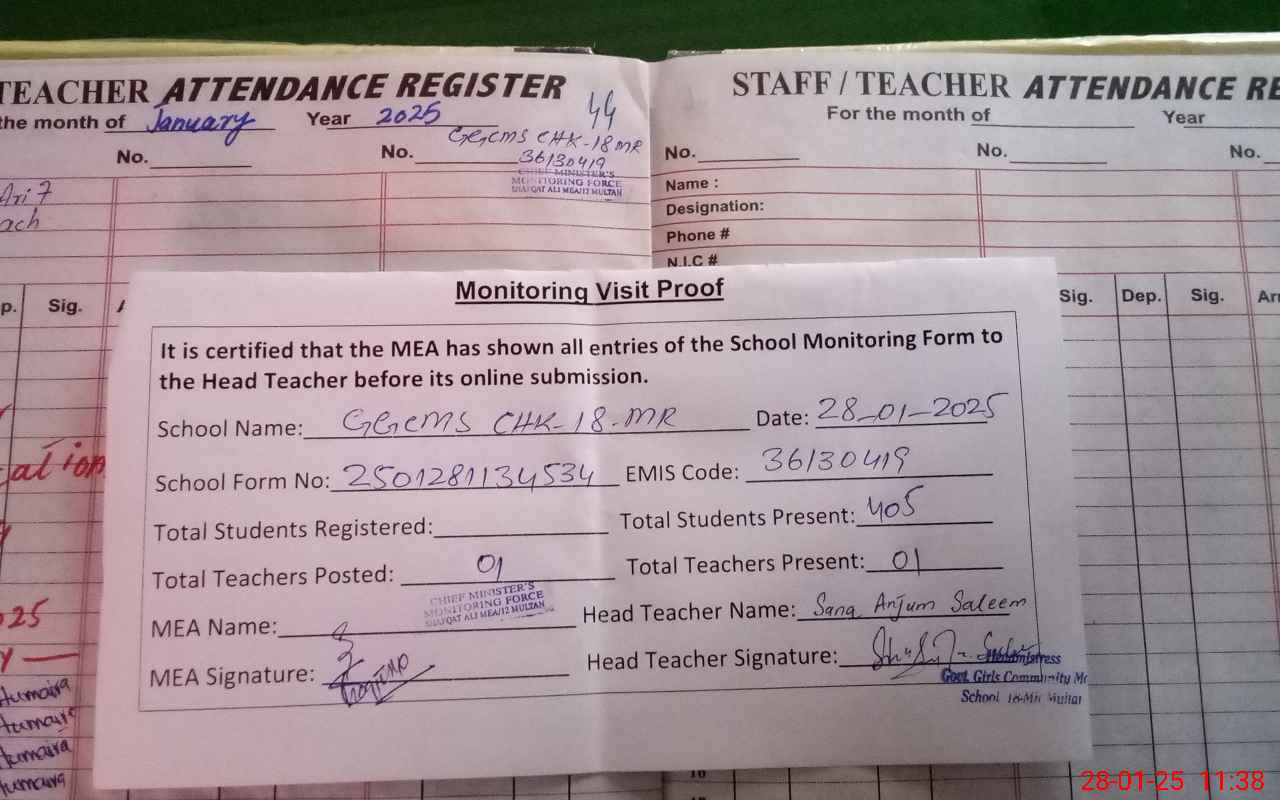 TEACHER ATTENDANCE REGISTER
the month of January Year 2025
44
GGCMS CHK-18 MR
36130419
No. No.
CHIEF MINISTER'S
MONITORING FORCE
SHAFQAT ALI MEA/12 MULTAN
Ari 7
ach
p. Sig.
STAFF / TEACHER ATTENDANCE RE
For the month of Year
No. No. No.
Name :
Designation:
Phone #
N.I.C #
Sig. Dep. Sig. Arr
Monitoring Visit Proof
It is certified that the MEA has shown all entries of the School Monitoring Form to
the Head Teacher before its online submission.
School Name: GGCMS CHK-18-MR Date: 28-01-2025
School Form No: 2501281134534 EMIS Code: 36130419
Total Students Registered: Total Students Present: 405
Total Teachers Posted: 01 Total Teachers Present: 01
CHIEF MINISTER'S
MONITORING FORCE
SHAFQAT ALI MEA/12 MULTAN
MEA Name: Head Teacher Name: Sana Anjum Saleem
MEA Signature: Head Teacher Signature:
Headmistress
Govt. Girls Community Mo
School 18-MR Multan
ation
025
Humaira
Humaira
Humaira
Humaira
10
28-01-25 11:38